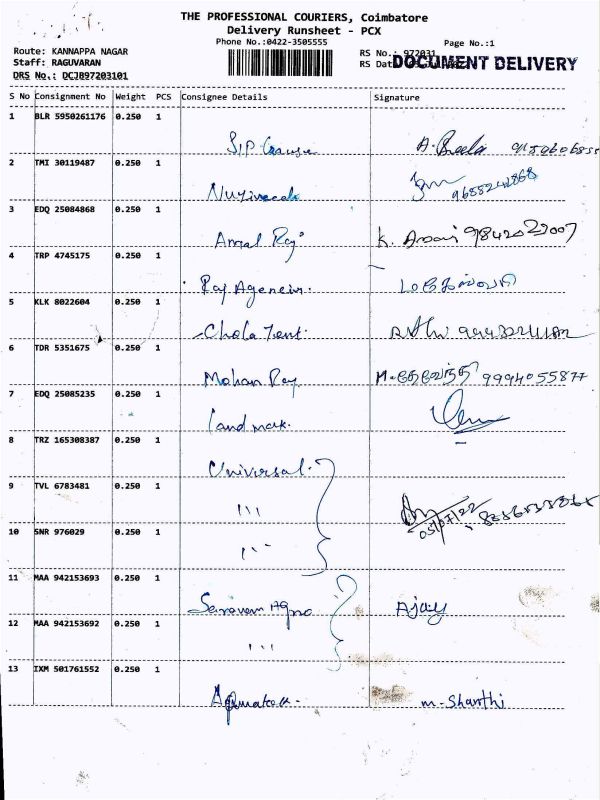 THE PROFESSIONAL COURIERS, Coimbatore
Delivery Runsheet - PCX
Phone No.:0422-3505555
Page No.:1
Route: KANNAPPA NAGAR
RS No.: 972031
Staff: RAGUVARAN
RS Dat
DOCUMENT DELIVERY
DRS No.: DCJB97203101
S No Consignment No Weight PCS Consignee Details Signature
1 BLR 5950261176 0.250 1
S/P
2 TMI 30119487 0.250 1
9688242868
3 EDQ 25084868 0.250 1
Angal Raj K. 9842023007
4 TRP 4745175 0.250 1
Raj Agencies.
5 KLK 8022604 0.250 1
Chola Tent.
6 TDR 5351675 0.250 1
Mohan Raj 9994055877
7 EDQ 25085235 0.250 1
Land mark.
8 TRZ 165308387 0.250 1
Universal.
9 TVL 6783481 0.250 1
ııı
05/07/22
10 SNR 976029 0.250 1
ııı
11 MAA 942153693 0.250 1
Ajay
12 MAA 942153692 0.250 1
ııı
13 IXM 501761552 0.250 1
m. Shanthi